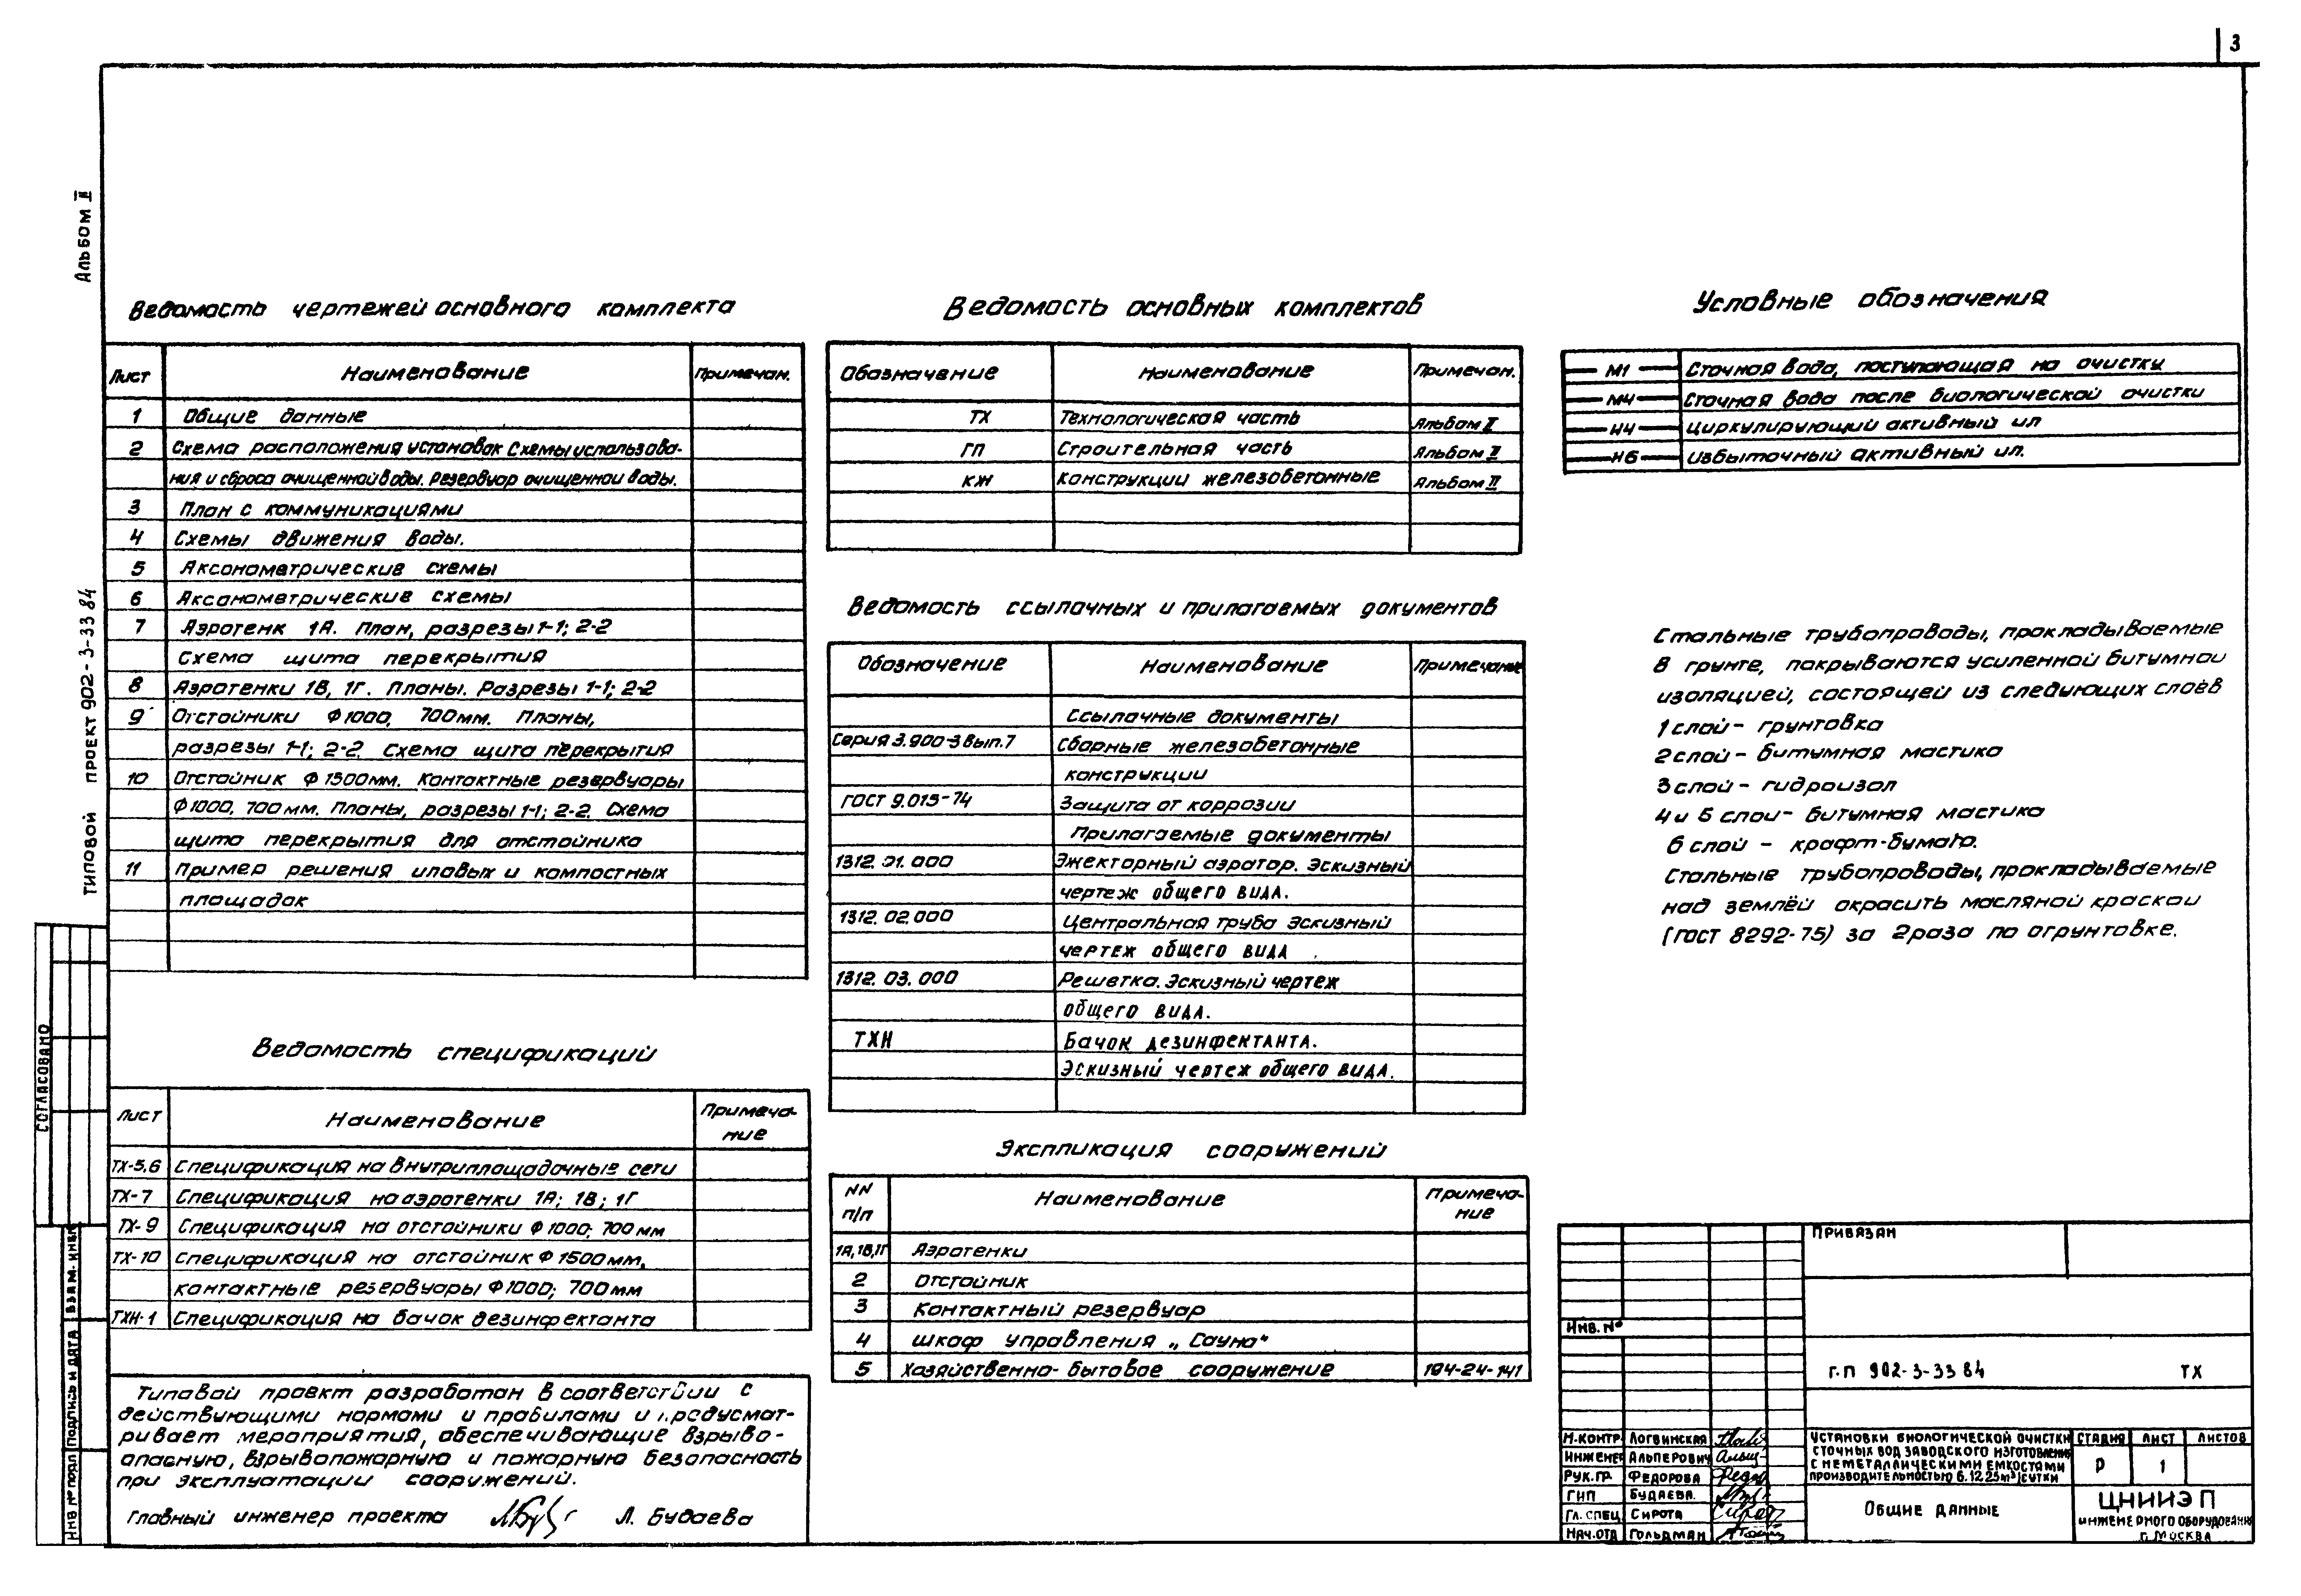 3
Альбом II
Типовой проект 902-3-33 84
Согласовано
Взам. инв№
Подпись и дата
Инв № подл
Ведомость чертежей основного комплекта
Лист Наименование Примечан.
1 Общие данные
2 Схема расположения установок Схемы использова-
ния и сброса очищенной воды. Резервуар очищенной воды.
3 План с коммуникациями
4 Схемы движения воды.
5 Аксонометрические схемы
6 Аксонометрические схемы
7 Аэротенк 1А. План, разрезы 1-1; 2-2
Схема щита перекрытия
8 Аэротенки 1В, 1Г. Планы. Разрезы 1-1; 2-2
9 Отстойники Ф1000, 700мм. Планы,
разрезы 1-1; 2-2. Схема щита перекрытия
10 Отстойник Ф 1500мм. Контактные резервуары
Ф1000, 700мм. Планы, разрезы 1-1; 2-2. Схема
щита перекрытия для отстойника
11 Пример решения иловых и компостных
площадок
Ведомость спецификаций
Лист Наименование Примеча-
ние
ТХ-5,6 Спецификация на внутриплощадочные сети
ТХ-7 Спецификация на аэротенки 1А; 1В; 1Г
ТХ-9 Спецификация на отстойники Ф1000; 700мм
ТХ-10 Спецификация на отстойник Ф1500мм,
контактные резервуары Ф1000; 700мм
ТХН-1 Спецификация на бачок дезинфектанта
Типовой проект разработан в соответствии с
действующими нормами и правилами и предусмат-
ривает мероприятия, обеспечивающие взрыво-
опасную, взрывопожарную и пожарную безопасность
при эксплуатации сооружений.
Главный инженер проекта Л. Будаева
Ведомость основных комплектов
Обозначение Наименование Примечан.
ТХ Технологическая часть Альбом II
ГП Строительная часть Альбом II
КЖ Конструкции железобетонные Альбом II
Ведомость ссылочных и прилагаемых документов
Обозначение Наименование Примечание
Ссылочные документы
Серия 3.900-3 вып.7 Сборные железобетонные
конструкции
ГОСТ 9.015-74 Защита от коррозии
Прилагаемые документы
1312.01.000 Эжекторный аэратор. Эскизный
чертеж общего вида.
1312.02.000 Центральная труба Эскизный
чертеж общего вида
1312.03.000 Решетка. Эскизный чертеж
общего вида.
ТХН Бачок дезинфектанта.
Эскизный чертеж общего вида.
Экспликация сооружений
NN
п/п Наименование Примеча-
ние
1А,1В,1Г Аэротенки
2 Отстойник
3 Контактный резервуар
4 шкаф управления „Сауна"
5 Хозяйственно-бытовое сооружение 184-24-141
Условные обозначения
М1 Сточная вода, поступающая на очистку
М4 Сточная вода после биологической очистки
И4 Циркулирующий активный ил
И6 избыточный активный ил.
Стальные трубопроводы, прокладываемые
в грунте, покрываются усиленной битумной
изоляцией, состоящей из следующих слоёв
1 слой - грунтовка
2 слой - битумная мастика
3 слой - гидроизол
4 и 5 слои - битумная мастика
6 слой - крафт-бумага.
Стальные трубопроводы, прокладываемые
над землёй окрасить масляной краской
(ГОСТ 8292-75) за 2 раза по огрунтовке.
Привязан
Инв. №
Г.П 902-3-33 84 ТХ
Н.контр Логвинская
Инженер Альперович
Рук.гр. Федорова
ГИП Будаева.
Гл.спец Сирота
Нач.отд Гольдман
Установки биологической очистки
сточных вод заводского изготовления
с неметаллическими емкостями
производительностью 6.12.25м³/сутки
Стадия Лист Листов
Р 1
Общие данные
ЦНИИЭП
инженерного оборудования
г. Москва